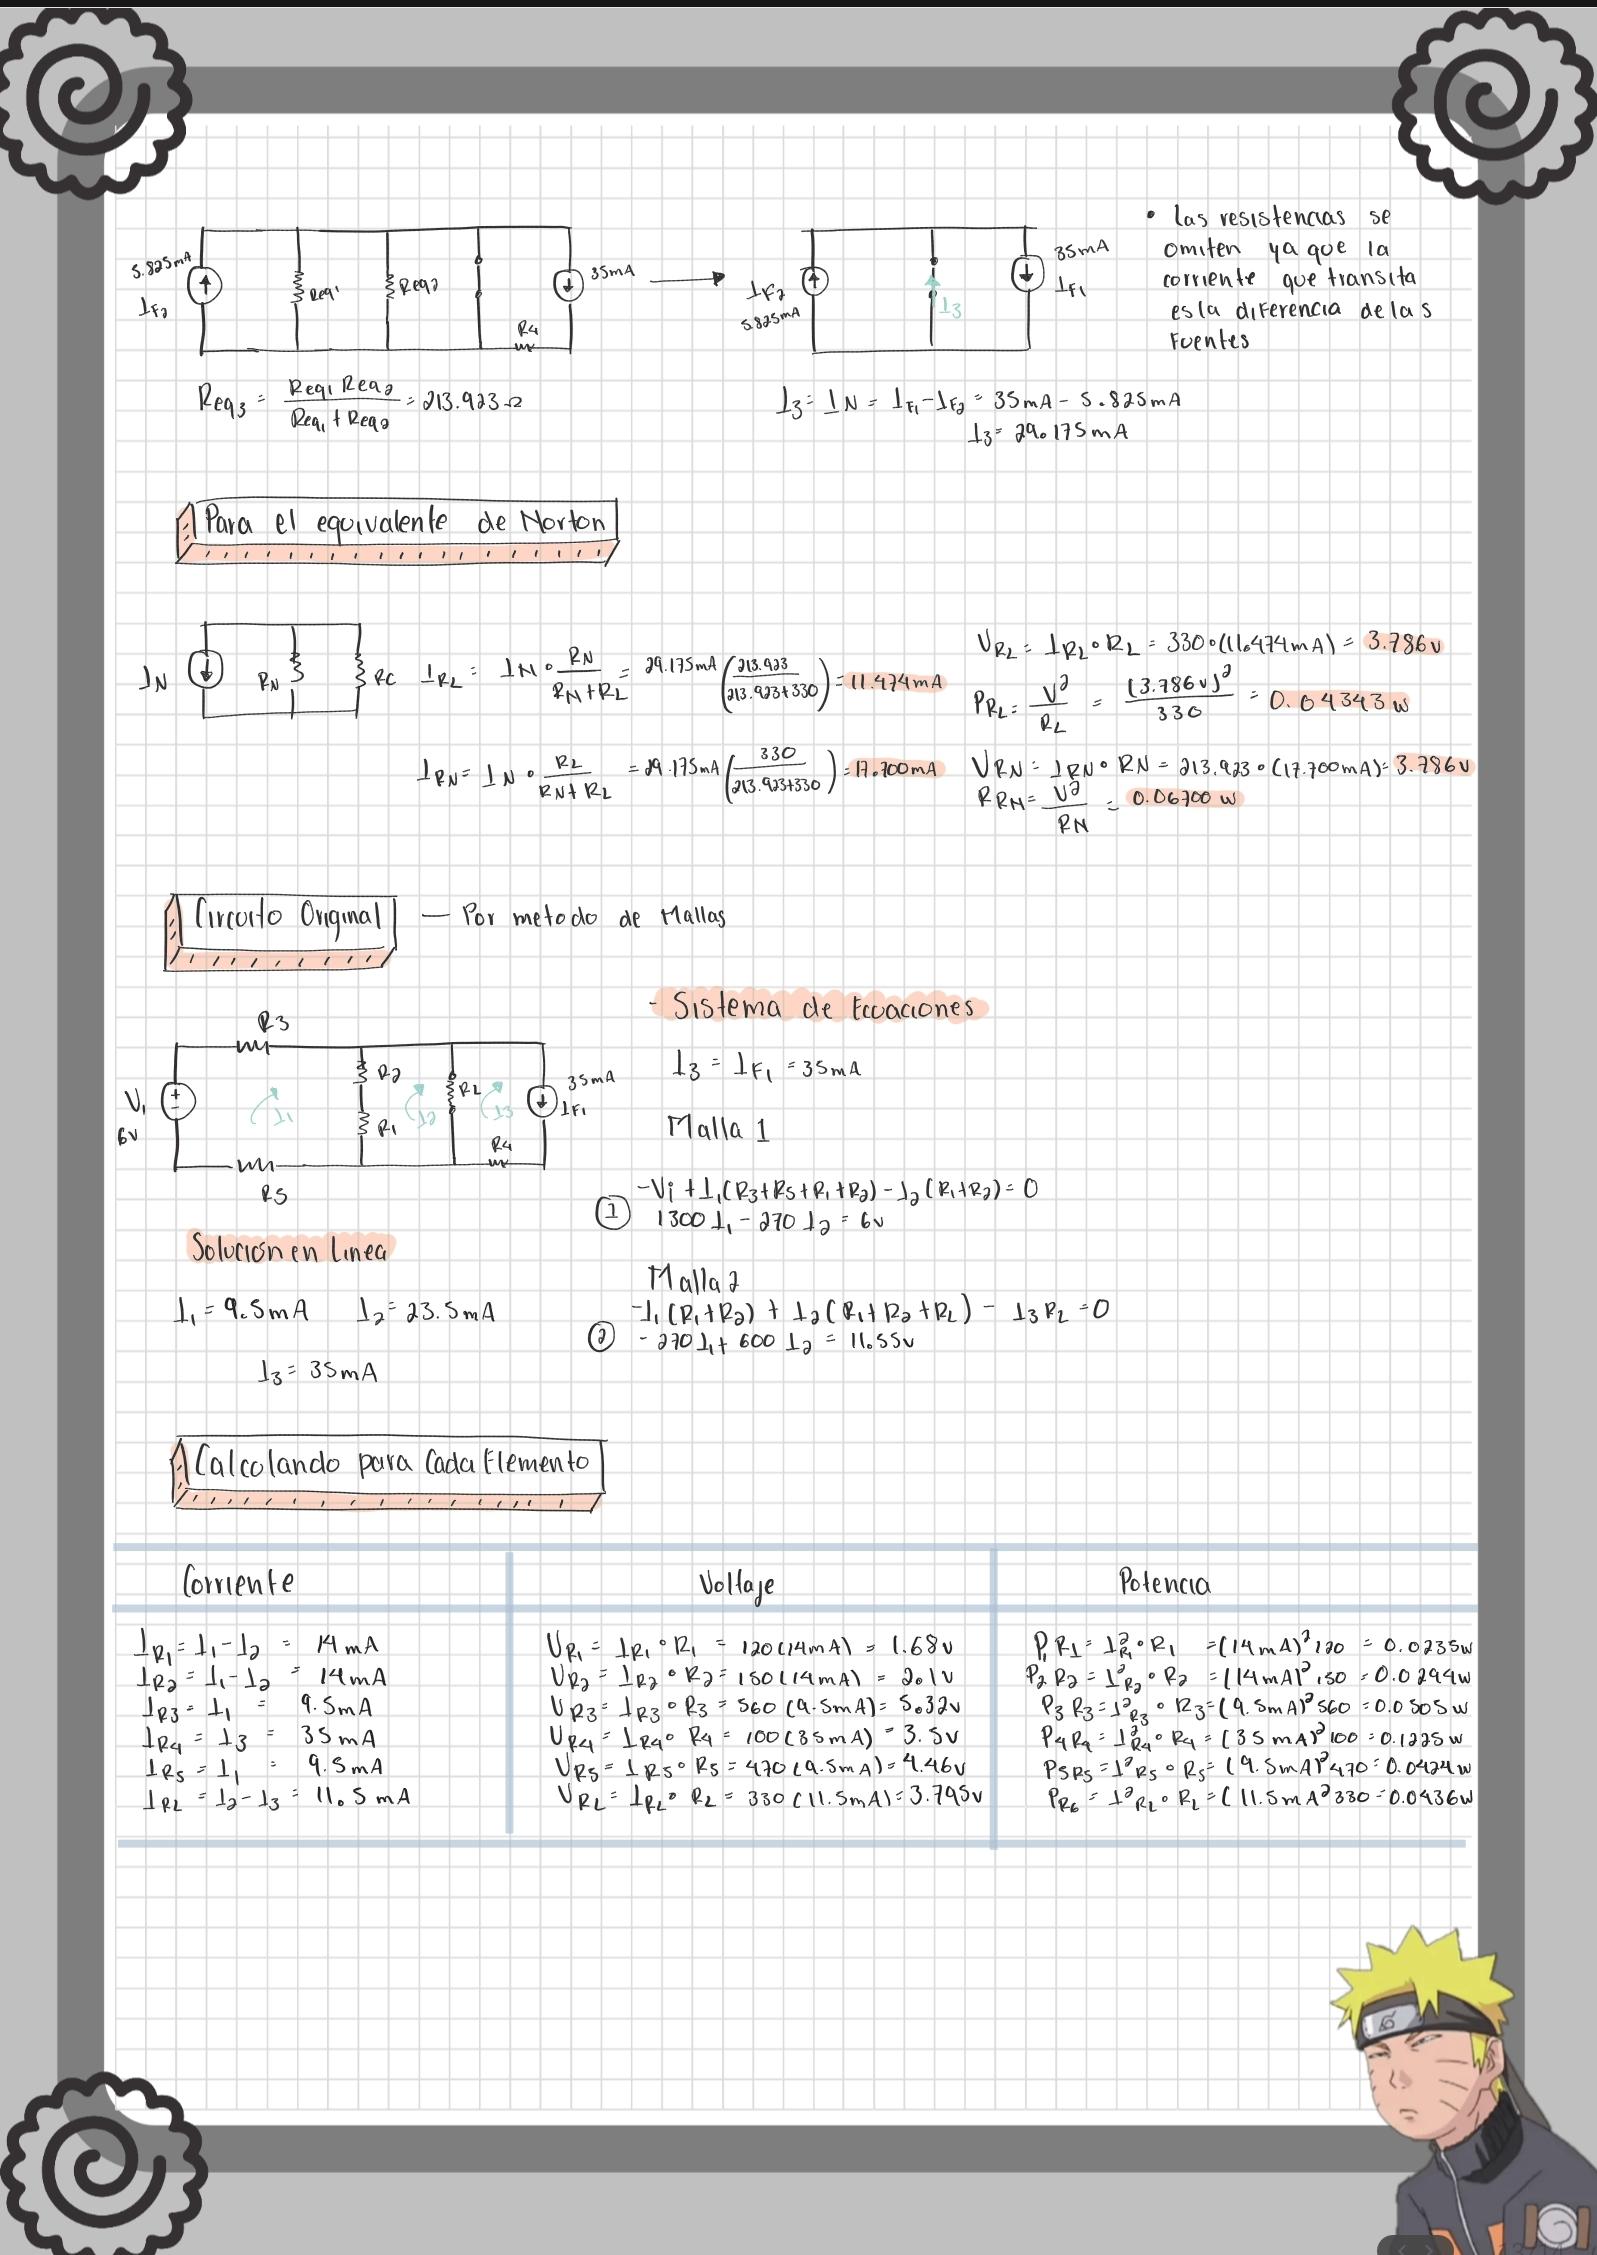 5.825mA
IF2
Req1
Req2
R4
35mA
IF2
5.825mA
I3
35mA
IF1
• las resistencias se
omiten ya que la
corriente que transita
es la diferencia de las
Fuentes
Req3 = Req1 Req2 / Req1 + Req2 = 213.923Ω
I3 = IN = IF1 - IF2 = 35mA - 5.825mA
I3 = 29.175mA
Para el equivalente de Norton
IN
RN
RC
IRL = IN ∘ RN / RN + RL = 29.175mA (213.923 / 213.923+330) = 11.474mA
VRL = IRL ∘ RL = 330 ∘ (11.474mA) = 3.786v
PRL = V² / RL = (3.786v)² / 330 = 0.04343 w
IRN = IN ∘ RL / RN + RL = 29.175mA (330 / 213.923+330) = 17.700mA
VRN = IRN ∘ RN = 213.923 ∘ (17.700mA) = 3.786v
RRN = V² / RN = 0.06700 w
Circuito Original — Por metodo de Mallas
R3
V1
6v
I1
R2
R1
I2
RL
I3
35mA
IF1
R4
R5
- Sistema de Ecuaciones
I3 = IF1 = 35mA
Malla 1
-Vi + I1(R3+R5+R1+R2) - I2(R1+R2) = 0
① 1300 I1 - 270 I2 = 6v
Malla 2
-I1(R1+R2) + I2(R1+R2+RL) - I3RL = 0
② -270 I1 + 600 I2 = 11.55v
Solución en Linea
I1 = 9.5mA I2 = 23.5mA
I3 = 35mA
Calculando para Cada Elemento
Corriente Voltaje Potencia
IR1 = I1 - I2 = 14mA VR1 = IR1 ∘ R1 = 120(14mA) = 1.68v P1R1 = I²R1 ∘ R1 = (14mA)² 120 = 0.0235w
IR2 = I1 - I2 = 14mA VR2 = IR2 ∘ R2 = 150(14mA) = 2.1v P2R2 = I²R2 ∘ R2 = (14mA)² 150 = 0.0294w
IR3 = I1 = 9.5mA VR3 = IR3 ∘ R3 = 560(9.5mA) = 5.32v P3R3 = I²R3 ∘ R3 = (9.5mA)² 560 = 0.0505w
IR4 = I3 = 35mA VR4 = IR4 ∘ R4 = 100(35mA) = 3.5v P4R4 = I²R4 ∘ R4 = (35mA)² 100 = 0.1225w
IR5 = I1 = 9.5mA VR5 = IR5 ∘ R5 = 470(9.5mA) = 4.46v P5R5 = I²R5 ∘ R5 = (9.5mA)² 470 = 0.0424w
IRL = I2 - I3 = 11.5mA VRL = IRL ∘ RL = 330(11.5mA) = 3.795v PR6 = I²RL ∘ RL = (11.5mA² 330 = 0.0436w